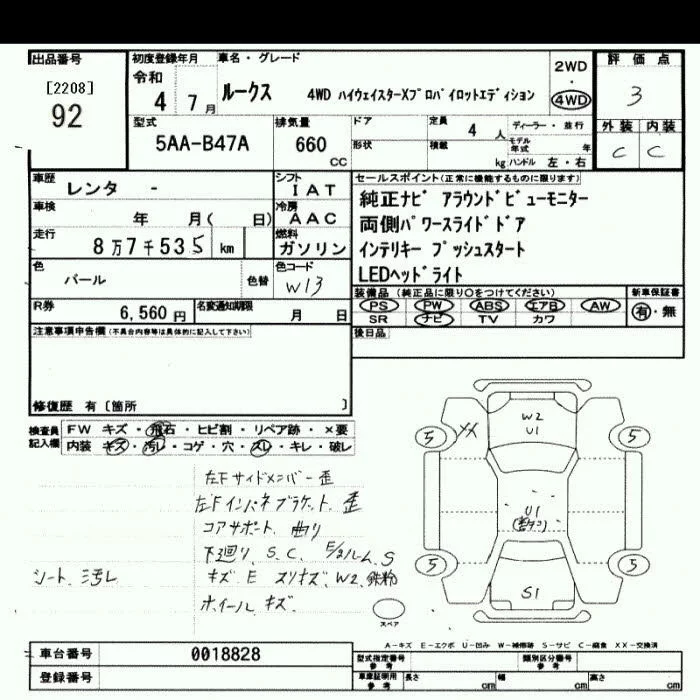 出品番号 初度登録年月 車名・グレード 2WD ・ 4WD 評価点
[2208] 92
令和 4 7月
ルークス 4WD ハイウェイスターXプロパイロットエディション
3
型式 5AA-B47A
排気量 660 CC
ドア 定員 4人 ディーラー・並行
形状 積載 kg モデル年式 年 ハンドル 左・右
外装 内装
C C
車歴 レンタ -
シフト IAT
セールスポイント(正常に機能するものに限ります)
車検 年 月( 日)
冷房 AAC
純正ナビ アラウンドビューモニター
両側パワースライドドア
走行 8万7千535km
燃料 ガソリン
インテリキー プッシュスタート
LEDヘッドライト
色 パール 色替
色コード W13
装備品(純正品に限り○をつけてください) 新車保証書
PS PW ABS エアB AW 有・無
SR ナビ TV カワ
R券 6,560円
名変通知期限 月 日
注意事項申告欄(不具合内容等は具体的に記入して下さい)
後日品
修復歴 有〔箇所 〕
検査員記入欄
FW キズ・飛石・ヒビ割・リペア跡・×要
内装 キズ・汚レ・コゲ・穴・スレ・キレ・破レ
左Fサイドメンバー歪
左Fインパネブラケット 歪
コアサポート 曲り
下廻り、S、C、 S
シート、汚レ
キズ E スリキズ、W2、鉄粉
ホイール キズ
W2
U1
5 XX 5
U1
5 5
S1
スペア
A-キズ E-エクボ U-凹み W-補修跡 S-サビ C-腐食 XX-交換済
車台番号 0018828
型式指定番号 参考 類別区分番号 参考
登録番号
車庫証明用 参考 長さ cm 幅 cm 高さ cm